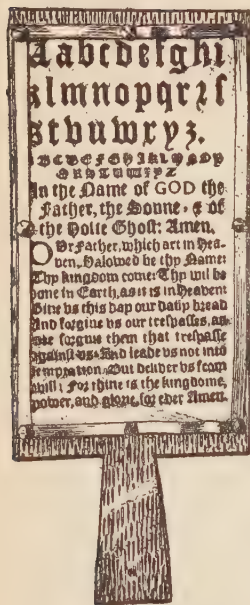 Aabcdefghi
klmnopqrꝛſ
stvuwxyz.
ABCDEFGHIKLMNOP
QRSTUWXYZ
In the Name of GOD the
Father, the Sonne, & of
the Holie Ghost: Amen.
OUr Father, which art in Hea-
ven, Halowed be thy Name:
Thy kingdom come: Thy wil be
done in Earth, as it is in Heaven:
Give vs this day our daily bread
And forgiue vs our treſpaſſes, as
we forgiue them that treſpaſſe
againſt vs. And leade vs not into
temptation. But deliver vs from
evill: For thine is the kingdome,
power, and glorie, for ever Amen.